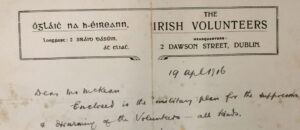 Óglaiġ na h-Éireann.
THE
IRISH VOLUNTEERS
HEADQUARTERS:
2 DAWSON STREET, DUBLIN.
19 Apl. 1916
Dear Mr McKean
Enclosed is the "military plan for the suppression
& disarming of the Volunteers — all